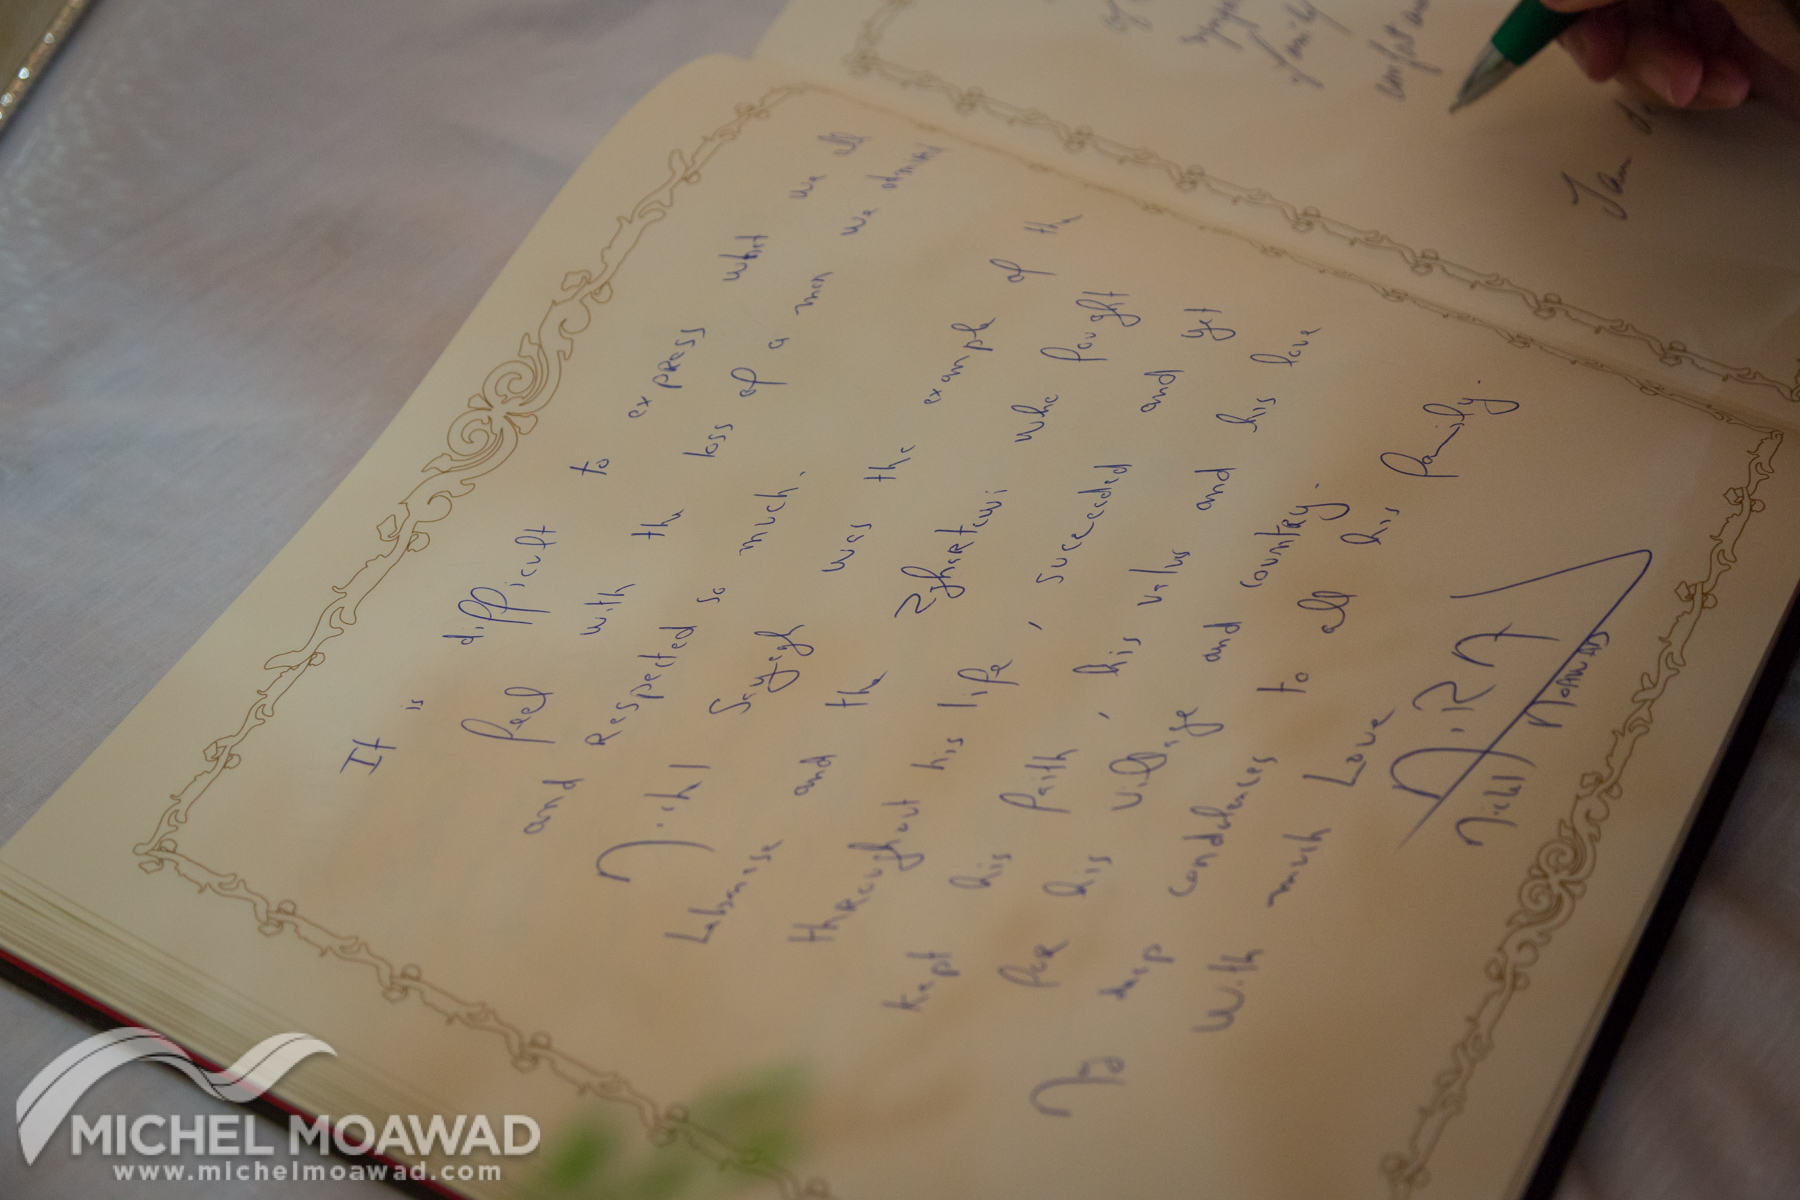 It is difficult to express what we all
feel with the loss of a man we admired
and Respected so much.
Michel Sayegh was the example of the
Lebanese and the Zghartawi who fought
throughout his life, succeeded and yet
kept his faith, his values and his love
for his village and country.
My deep condolences to all his family
With much Love
Michel Moawad
family
Jam
MICHEL MOAWAD
www.michelmoawad.com